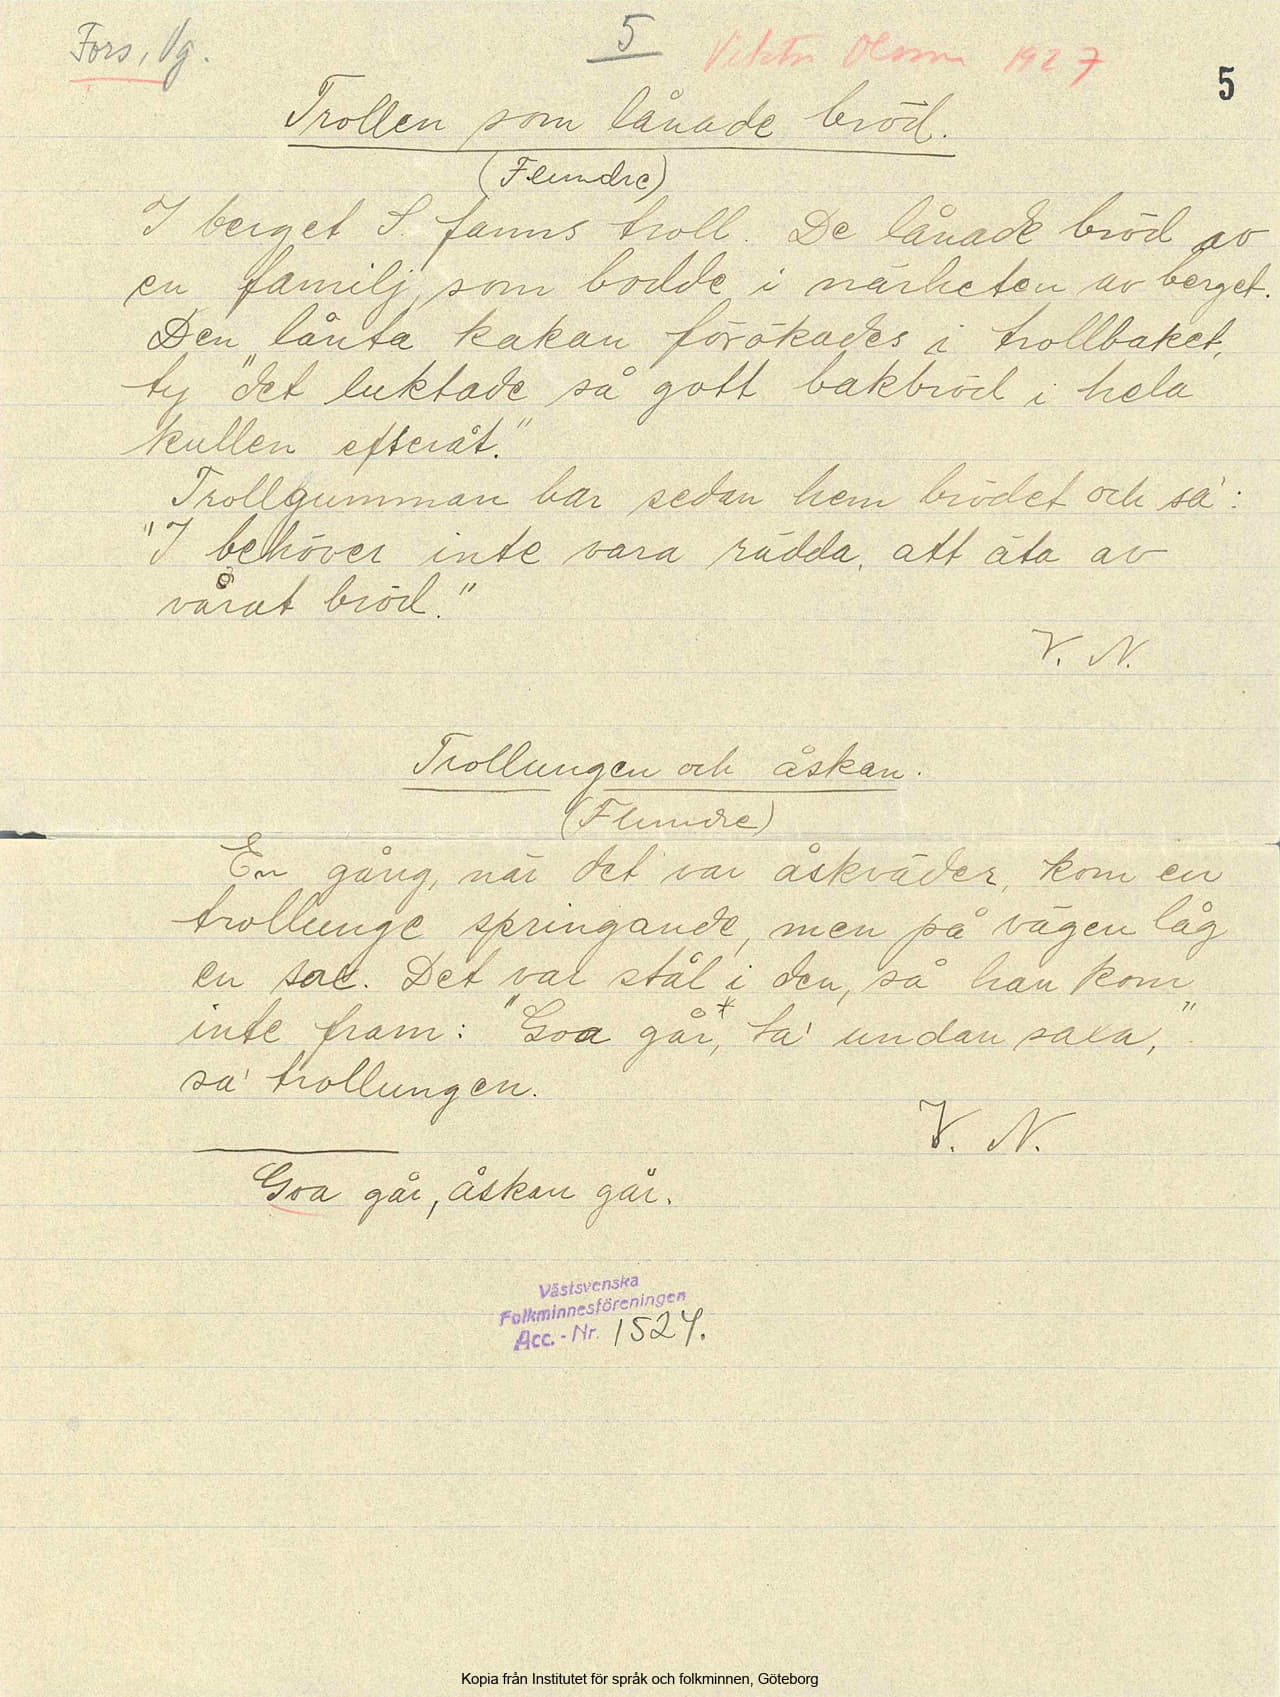 Fors, Vg.
5
Viktor Olsson 1927
5
Trollen som lånade bröd.
(Flundre)
I berget S. fanns troll. De lånade bröd av
en familj, som bodde i närheten av berget.
Den lånta kakan förökades i trollbaket,
ty "det luktade så gott bakbröd i hela
kullen efteråt."
Trollgumman bar sedan hem brödet och sa':
"I behöver inte vara rädda, att äta av
vårat bröd."
V. N.
Trollungen och åskan.
(Flundre)
En gång, när det var åskväder, kom en
trollunge springande, men på vägen låg
en sax. Det var stål i den, så han kom
inte fram: "Goa går,* ta' undan saxa,"
sa' trollungen.
V. N.
Goa går, åskan går.
Västsvenska
Folkminnesföreningen
Acc.-Nr. 1524.
Kopia från Institutet för språk och folkminnen, Göteborg